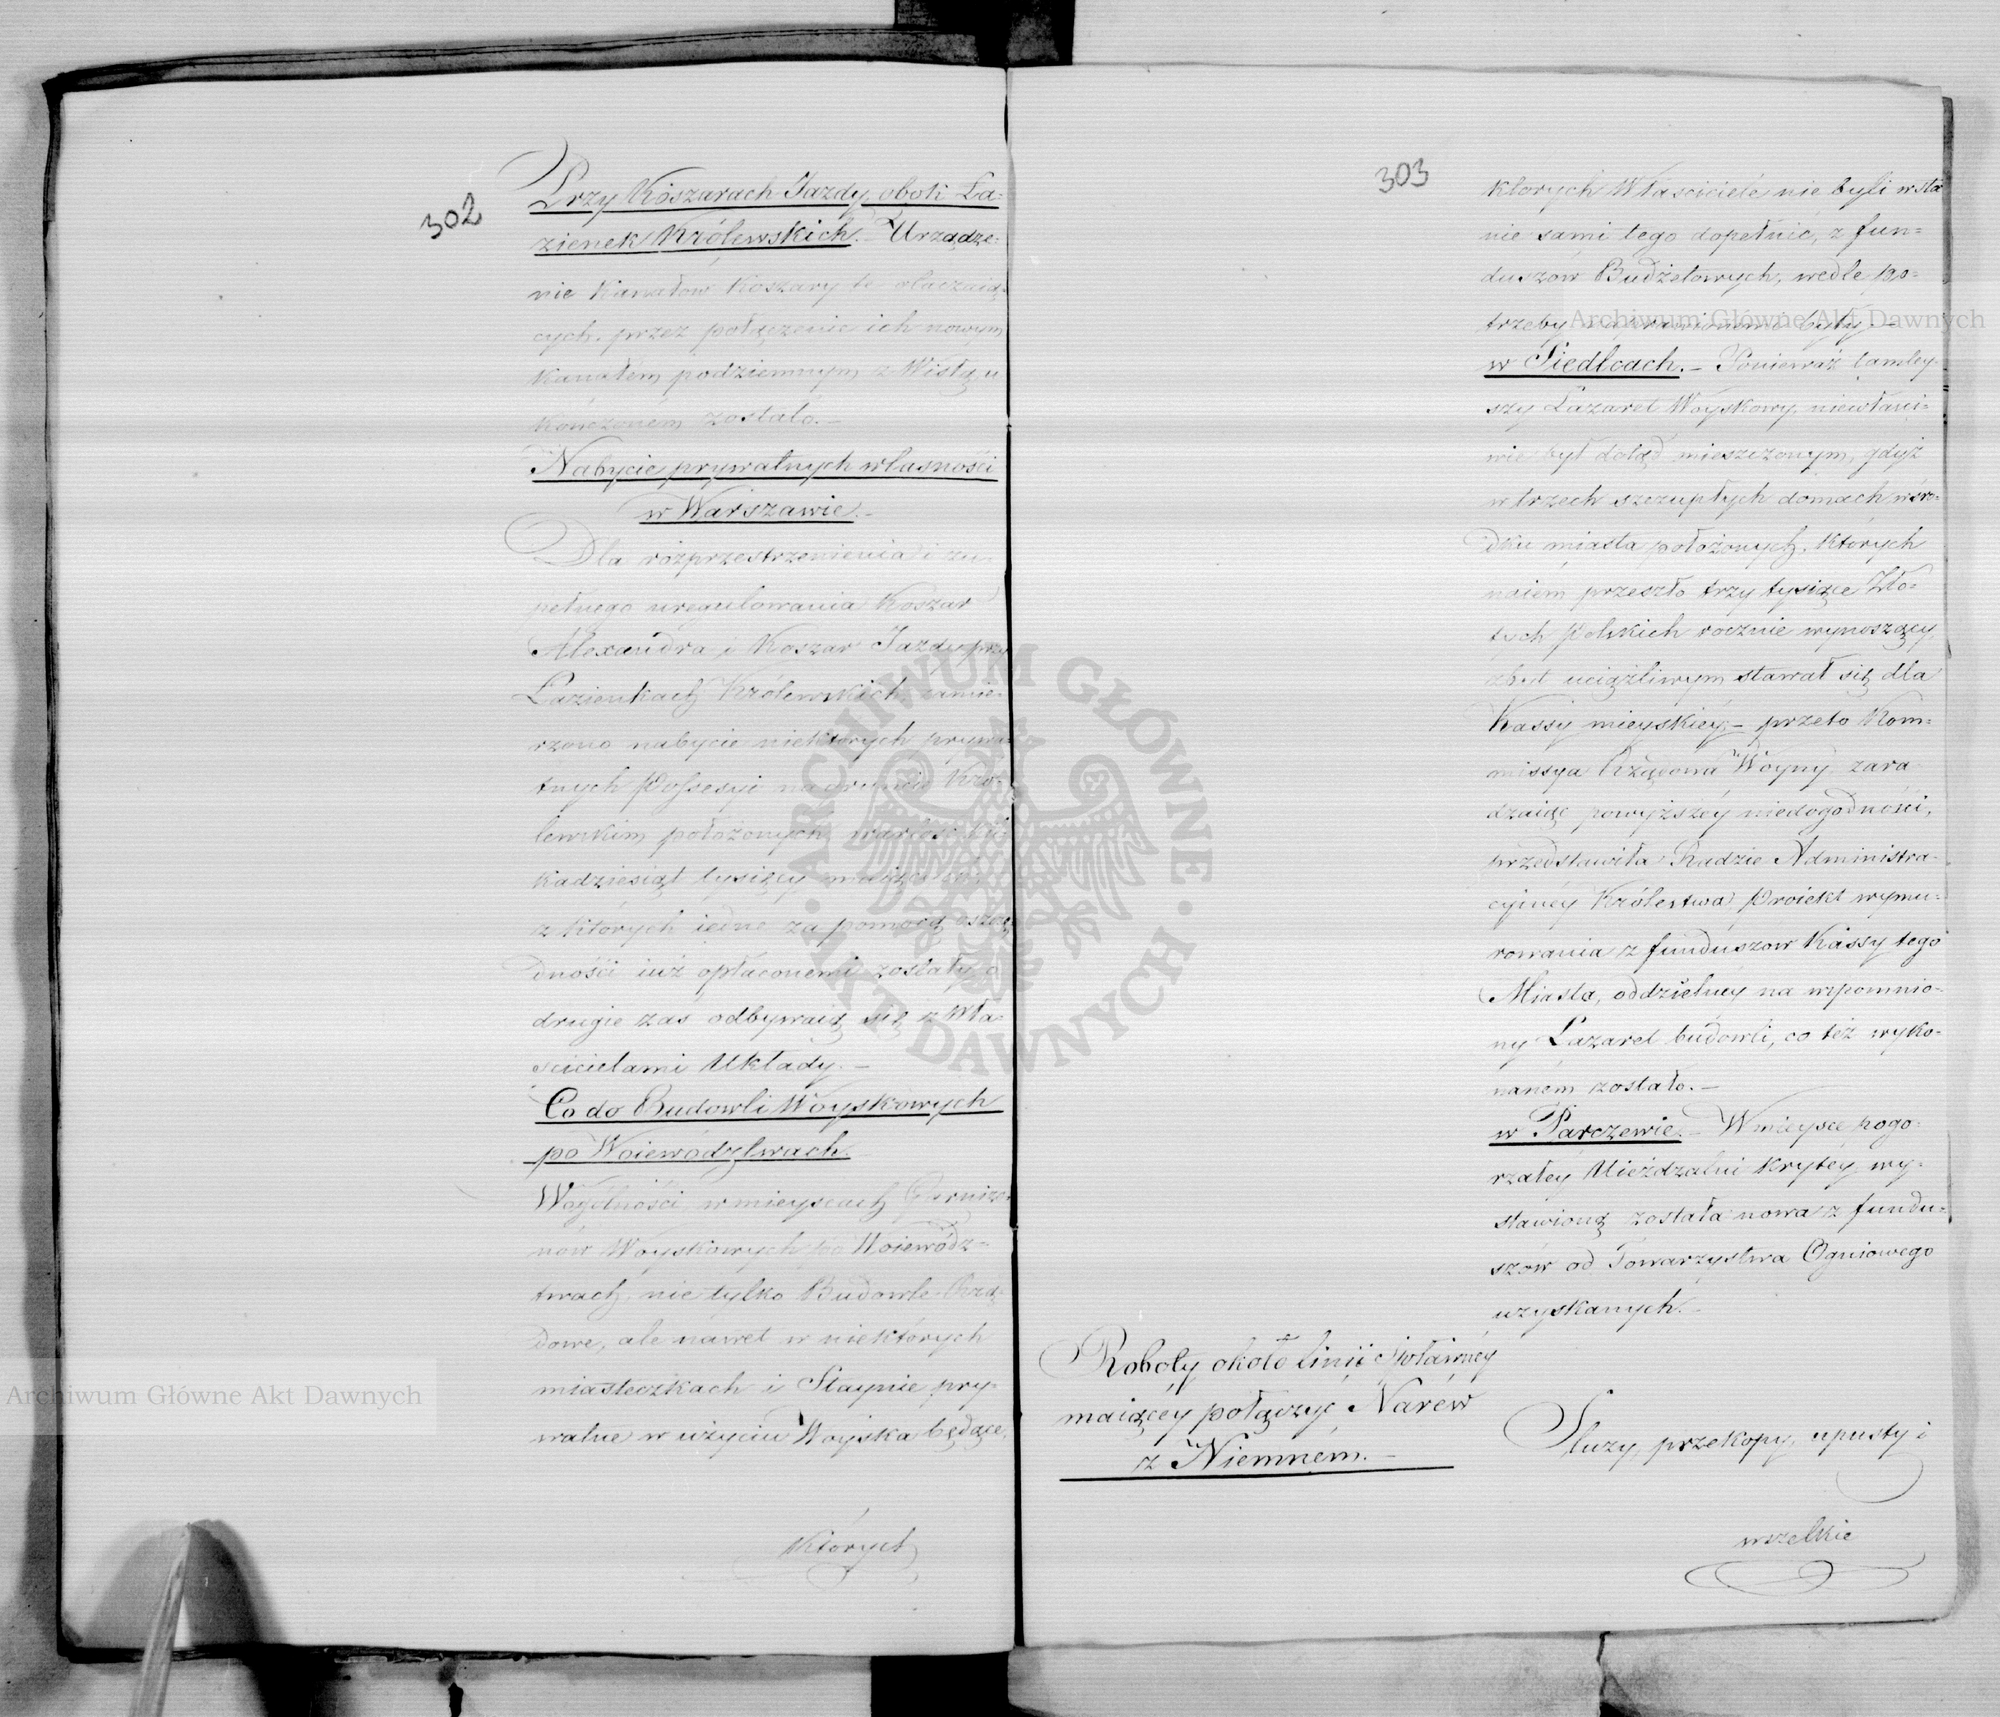 302
Przy Koszarach Jazdy, obok Ła-
zienek Królewskich. – Urządze-
nie Kanałow Koszary te otaczaią-
cych, przez połączenie ich nowym
kanałem podziemnym z Wisłą u-
kończonem zostało. –
Nabycie prywatnych własności
w Warszawie. –
Dla rozprzestrzenienia i zu-
pełnego uregulowania Koszar
Alexandra i Koszar Jazdy przy
Łazienkach Królewskich, zamie-
rzono nabycie niektórych prywa-
tnych Possesyi na gruncie Kró-
lewskim położonych, wartość kil-
kadziesiąt tysięcy
z których iedne za pomocą oszczę-
dności iuż opłaconemi zostały, o
drugie zaś odbywaią się z Wła-
ścicielami Układy. –
Co do Budowli Woyskowych
po Woiewództwach.
Wogólności w mieyscach Garnizo-
nów Woyskowych po Woiewódz-
twach, nie tylko Budowle Rzą-
dowe, ale nawet w niektórych
miasteczkach i Staynie pry-
watne w użyciu Woyska będące,
których
303
których Właściciele nie byli w sta-
nie sami tego dopełnić, z fun-
duszów Budżetowych, wedle po-
trzeby naprawionemi były. –
w Siedlcach. – Ponieważ tamtey-
szy Lazaret Woyskowy, niewłaści-
wie był dotąd mieszczonym, gdyż
w trzech szczupłych domach w śro-
dku miasta położonych, których
naiem przeszło trzy tysiące Zło-
tych Polskich rocznie wynoszący,
zbyt uciążliwym stawał się dla
Kassy mieyskiéy; – przeto Kom-
missya Rządowa Woyny, zara-
dzaiąc powyższéy niedogodności,
przedstawiła Radzie Administra-
cyinéy Królestwa Proiekt wymu-
rowania z funduszow Kassy tego
Miasta, oddzielney na wspomnio-
ny Lazaret budowli, co też wyko-
nanem zostało. –
w Parczewie. – W mieysce pogo-
rzałey Uieżdżalni Krytey, wy-
stawioną została nowa z fundu-
szów od Towarzystwa Ogniowego
uzyskanych. –
Roboty około linii Spławnéy
maiącéy połączyć Narew
z Niemnem. –
Sluzy, przekopy, upusty i
wszelkie
Archiwum Główne Akt Dawnych
Archiwum Główne Akt Dawnych
ARCHIWUM GŁÓWNE · AKT DAWNYCH ·